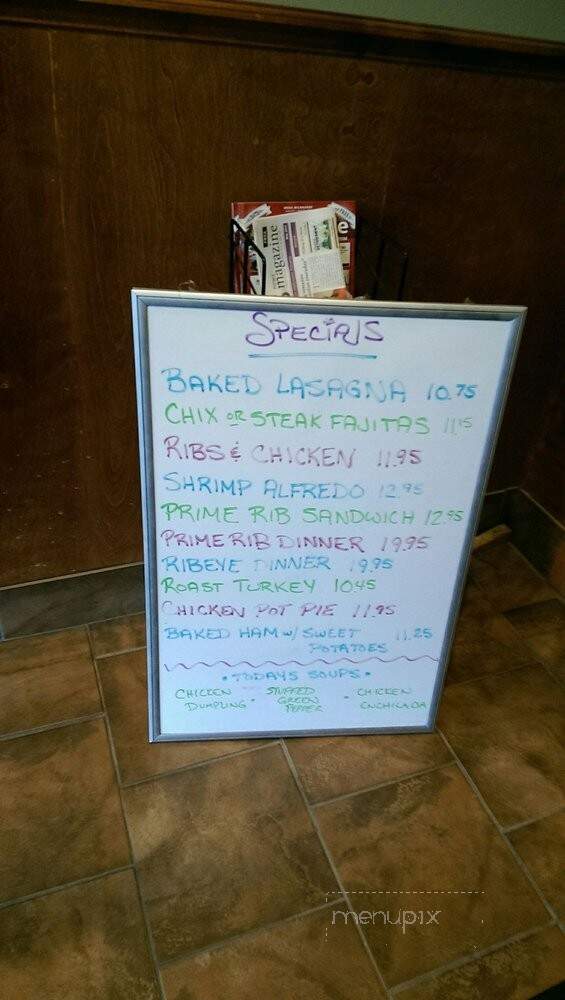 magazine
e
SPECIALS
BAKED LASAGNA 10.75
CHIX OR STEAK FAJITAS 11.15
RIBS & CHICKEN 11.95
SHRIMP ALFREDO 12.95
PRIME RIB SANDWICH 12.95
PRIME RIB DINNER 19.95
RIBEYE DINNER 19.95
ROAST TURKEY 10.45
CHICKEN POT PIE 11.95
BAKED HAM W/ SWEET 11.25
POTATOES
• TODAYS SOUPS •
CHICKEN STUFFED CHICKEN
DUMPLING • GREEN • ENCHILADA
PEPPER
menupix